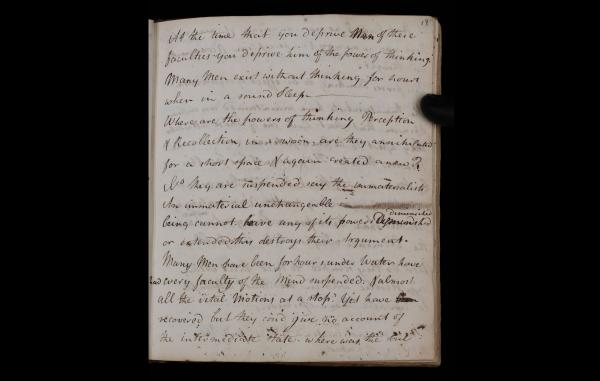 18
At the time that you deprive Man of these
faculties you deprive him of the power of thinking.
Many Men exist without thinking for hours
when in a sound Sleep
Where are the powers of thinking Perception
& Recollection, in a swoon, are they annihilated
for a short space & again created anew?
No they are suspended say the immaterialists
An immaterial unchangeable
diminished
being cannot have any of its powers
or extended this destroys their Argument.
Many Men have been for hours under Water have
had every faculty of the Mind suspended. & almost
all the vital Motions at a stop. Yet have
recovered but they could give no account of
the intermediate state. where was the